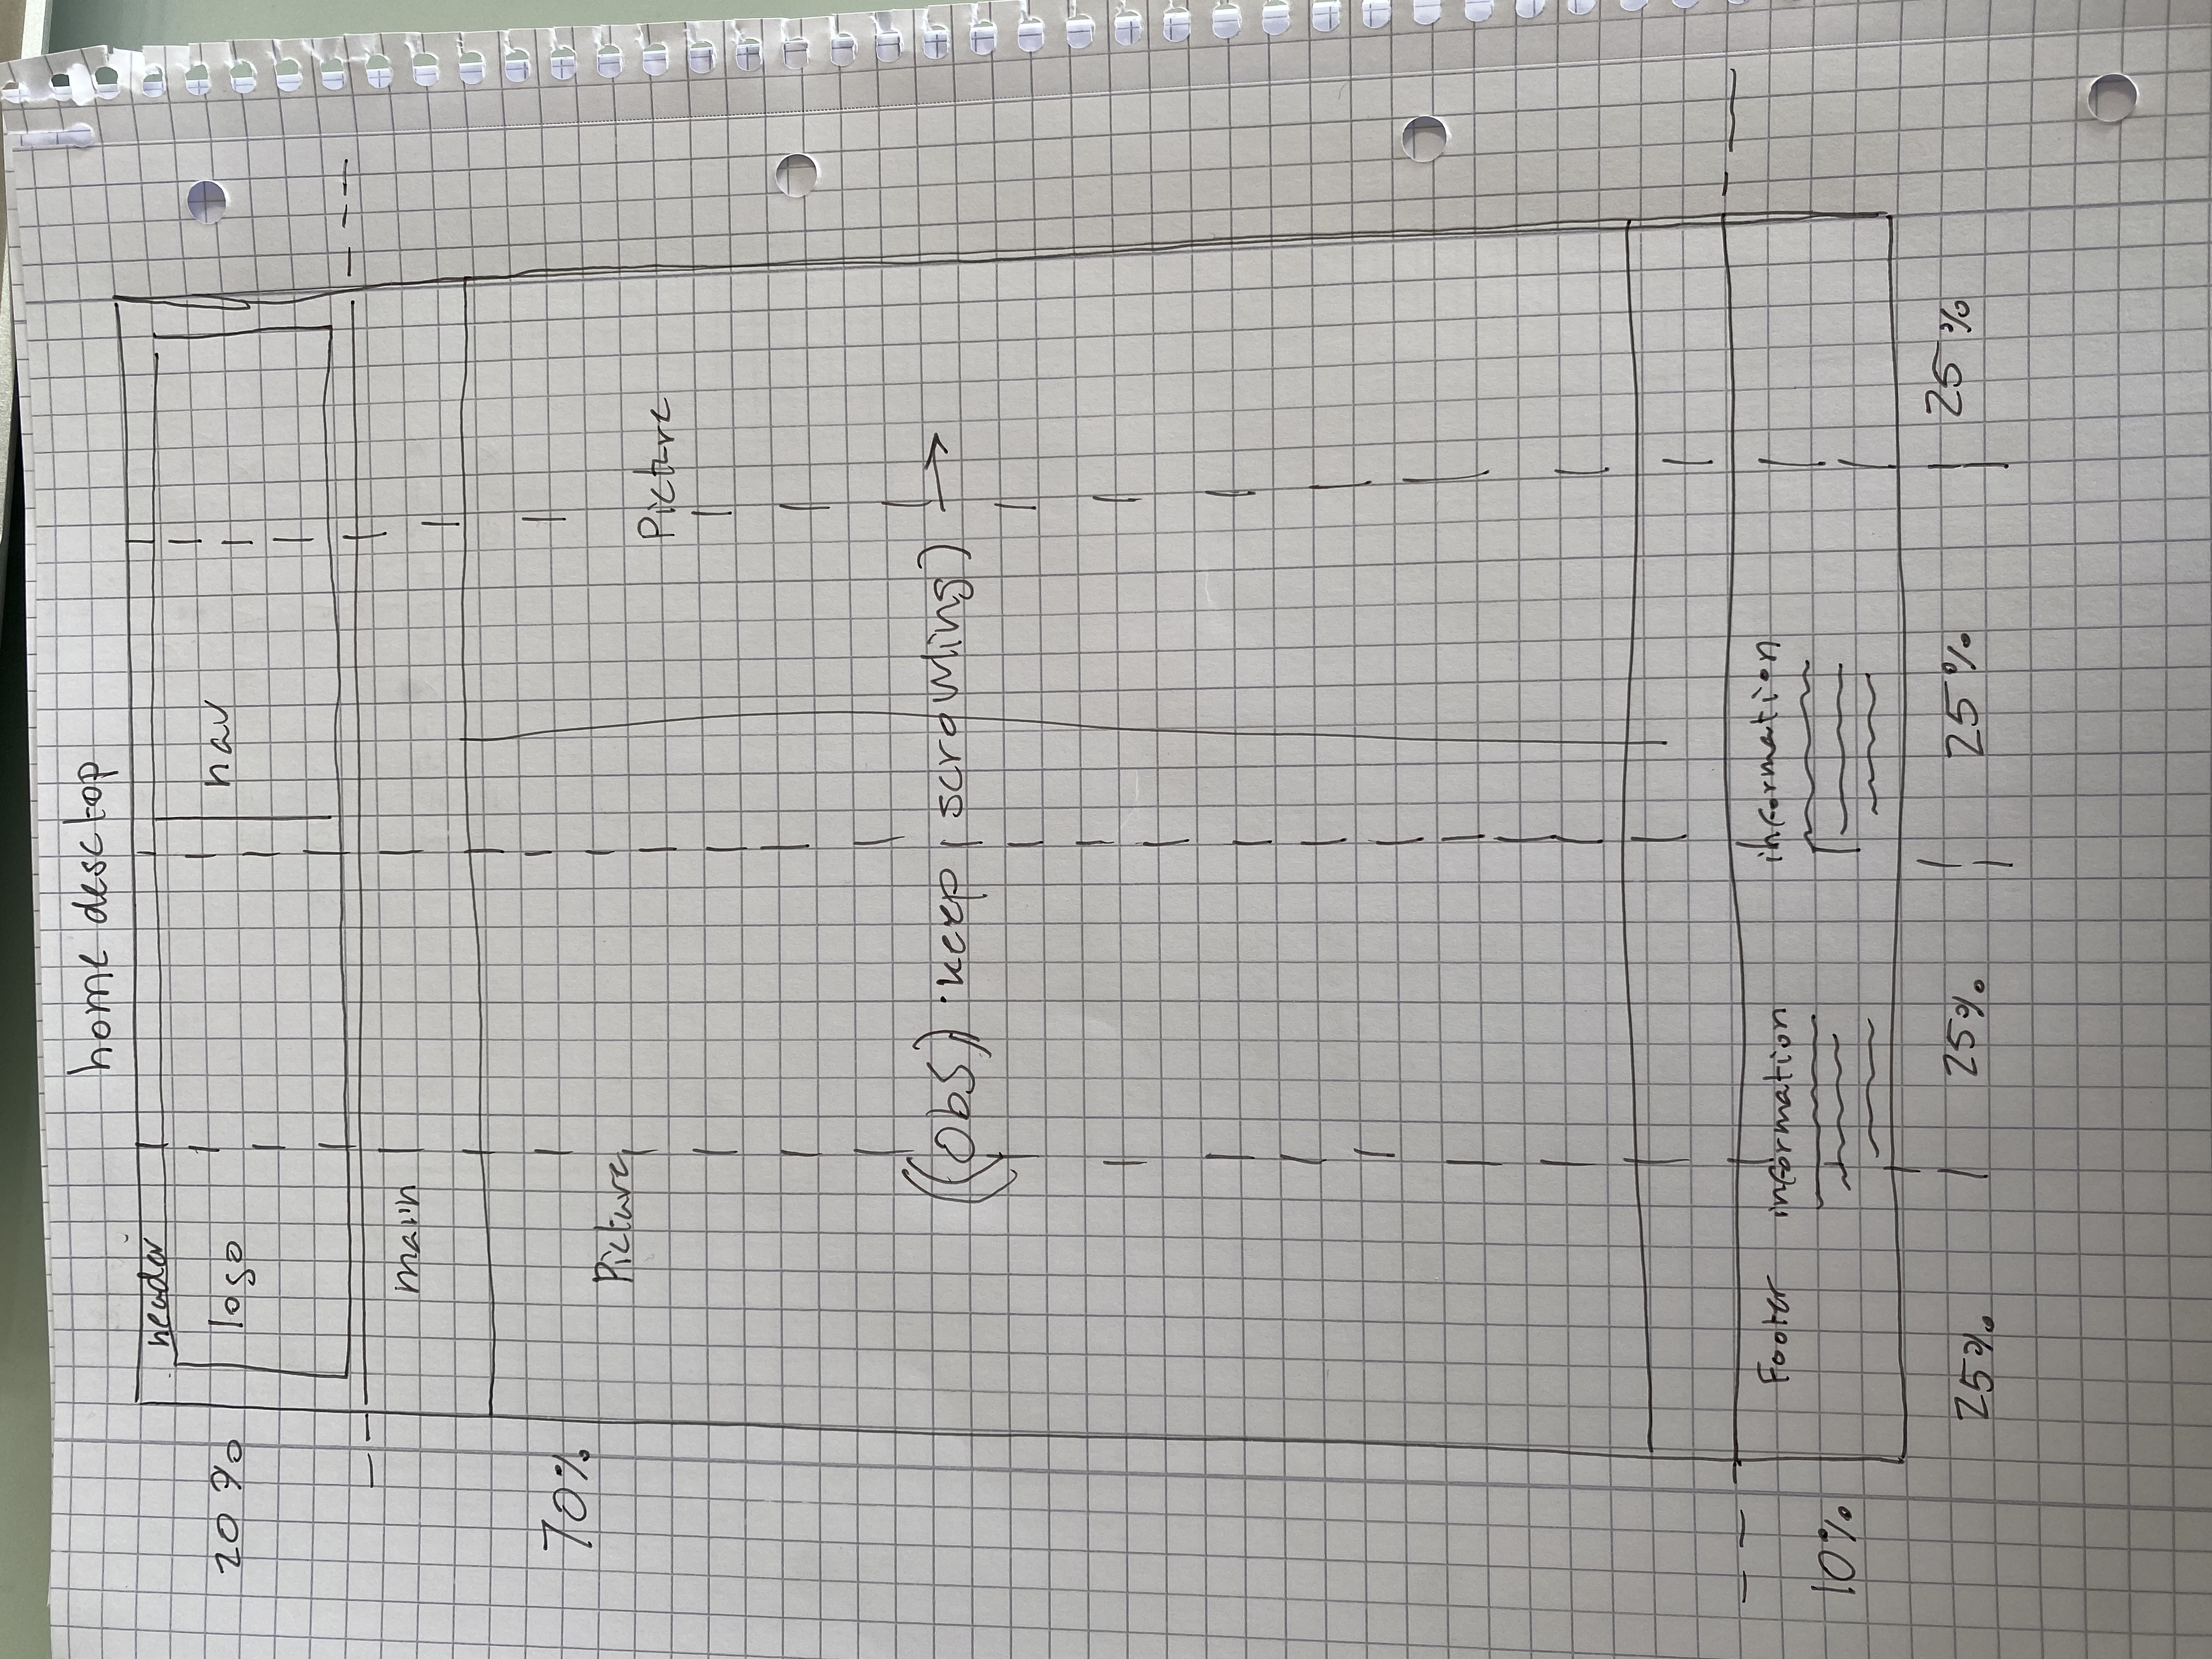 home desctop
header
20%
logo
nav
main
70%
Picture
Picture
((obs) keep scrowling) →
Footer information information
10%
25% 25% 25% 25%